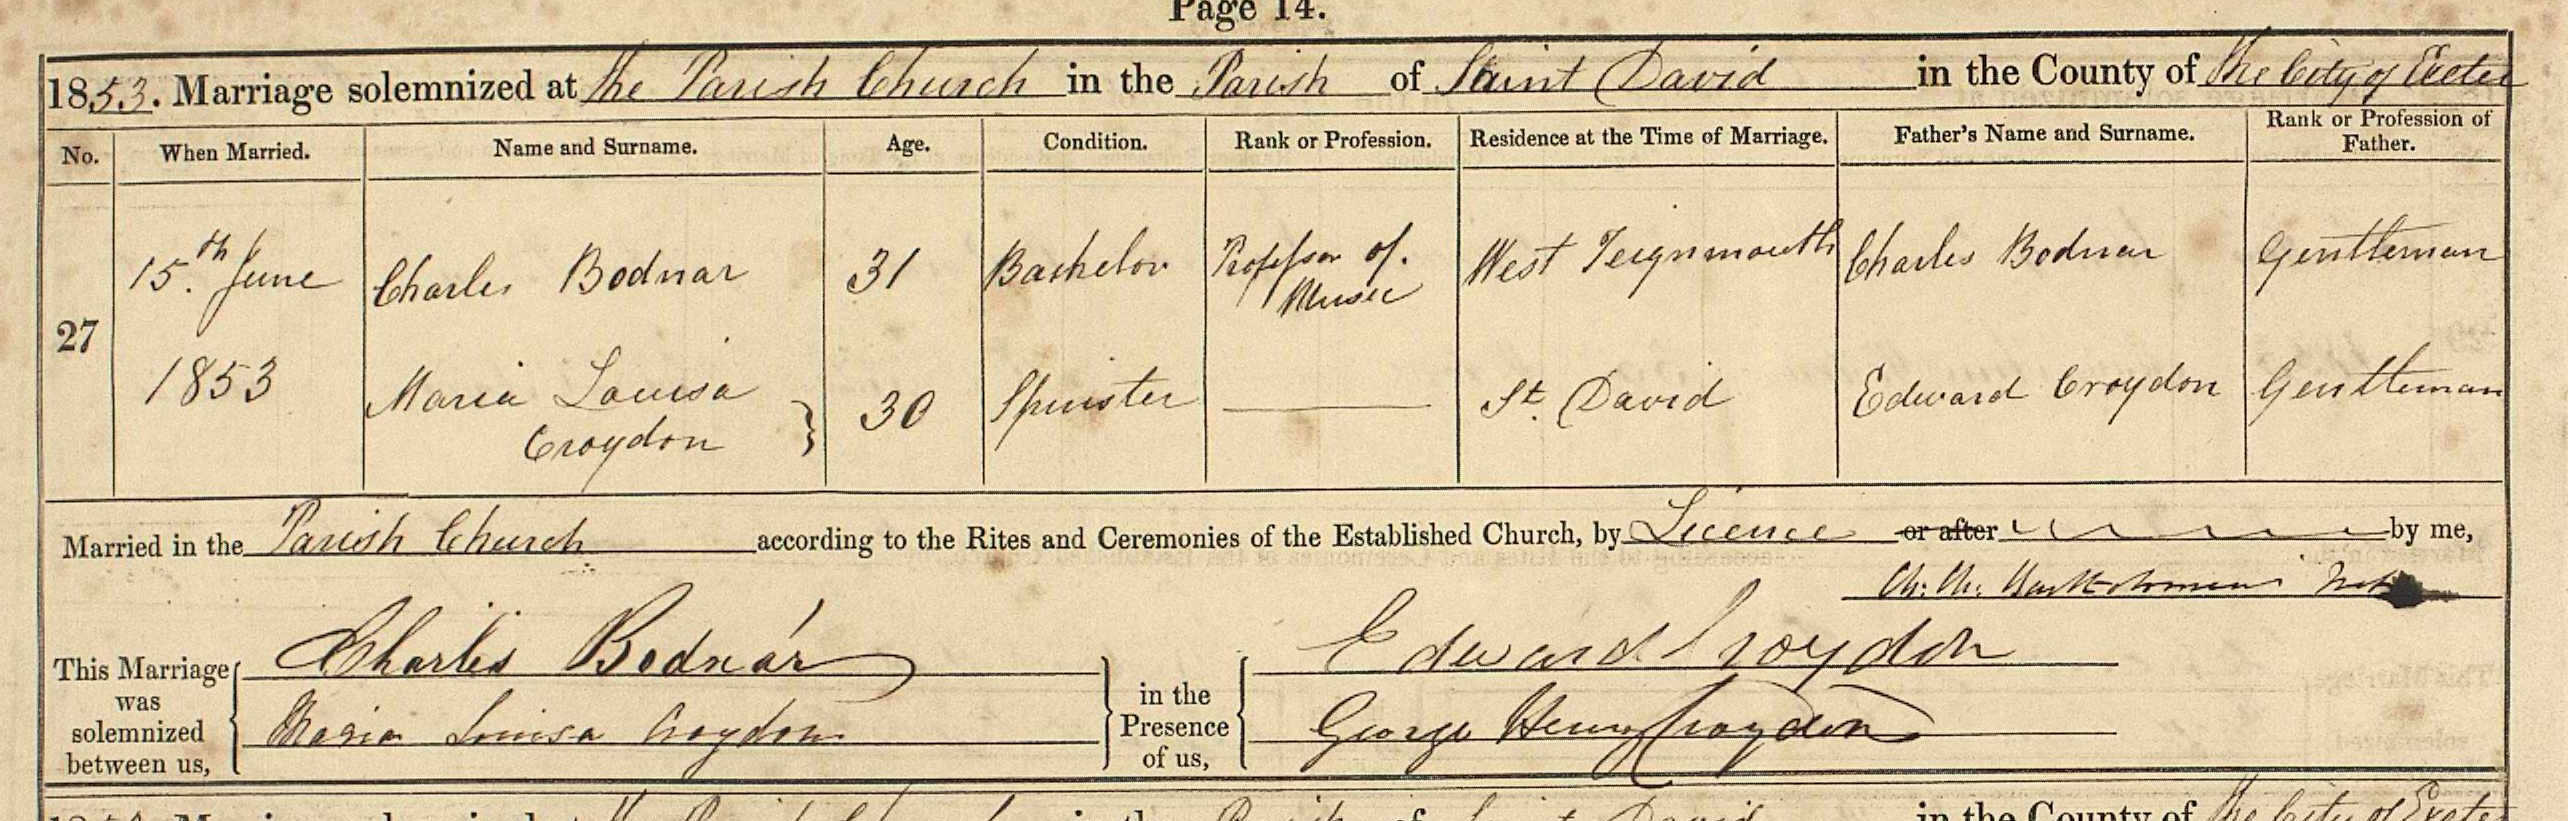 Page 14.
1853. Marriage solemnized at the Parish Church in the Parish of Saint David in the County of the City of Exeter
No. When Married. Name and Surname. Age. Condition. Rank or Profession. Residence at the Time of Marriage. Father's Name and Surname. Rank or Profession of Father.
27
15.th June Charles Bodnar 31 Bachelor Professor of Music West Teignmouth Charles Bodnar Gentleman
1853 Maria Louisa Croydon } 30 Spinster St. David Edward Croydon Gentleman
Married in the Parish Church according to the Rites and Ceremonies of the Established Church, by Licence or after by me,
Ch. Ch. Bartholomew
This Marriage was solemnized between us, { Charles Bodnár } in the Presence of us, { Edward Croydon
Maria Louisa Croydon George Henry Croydon
Marriage solemnized at the Parish Church in the Parish of Saint David in the County of the City of Exeter